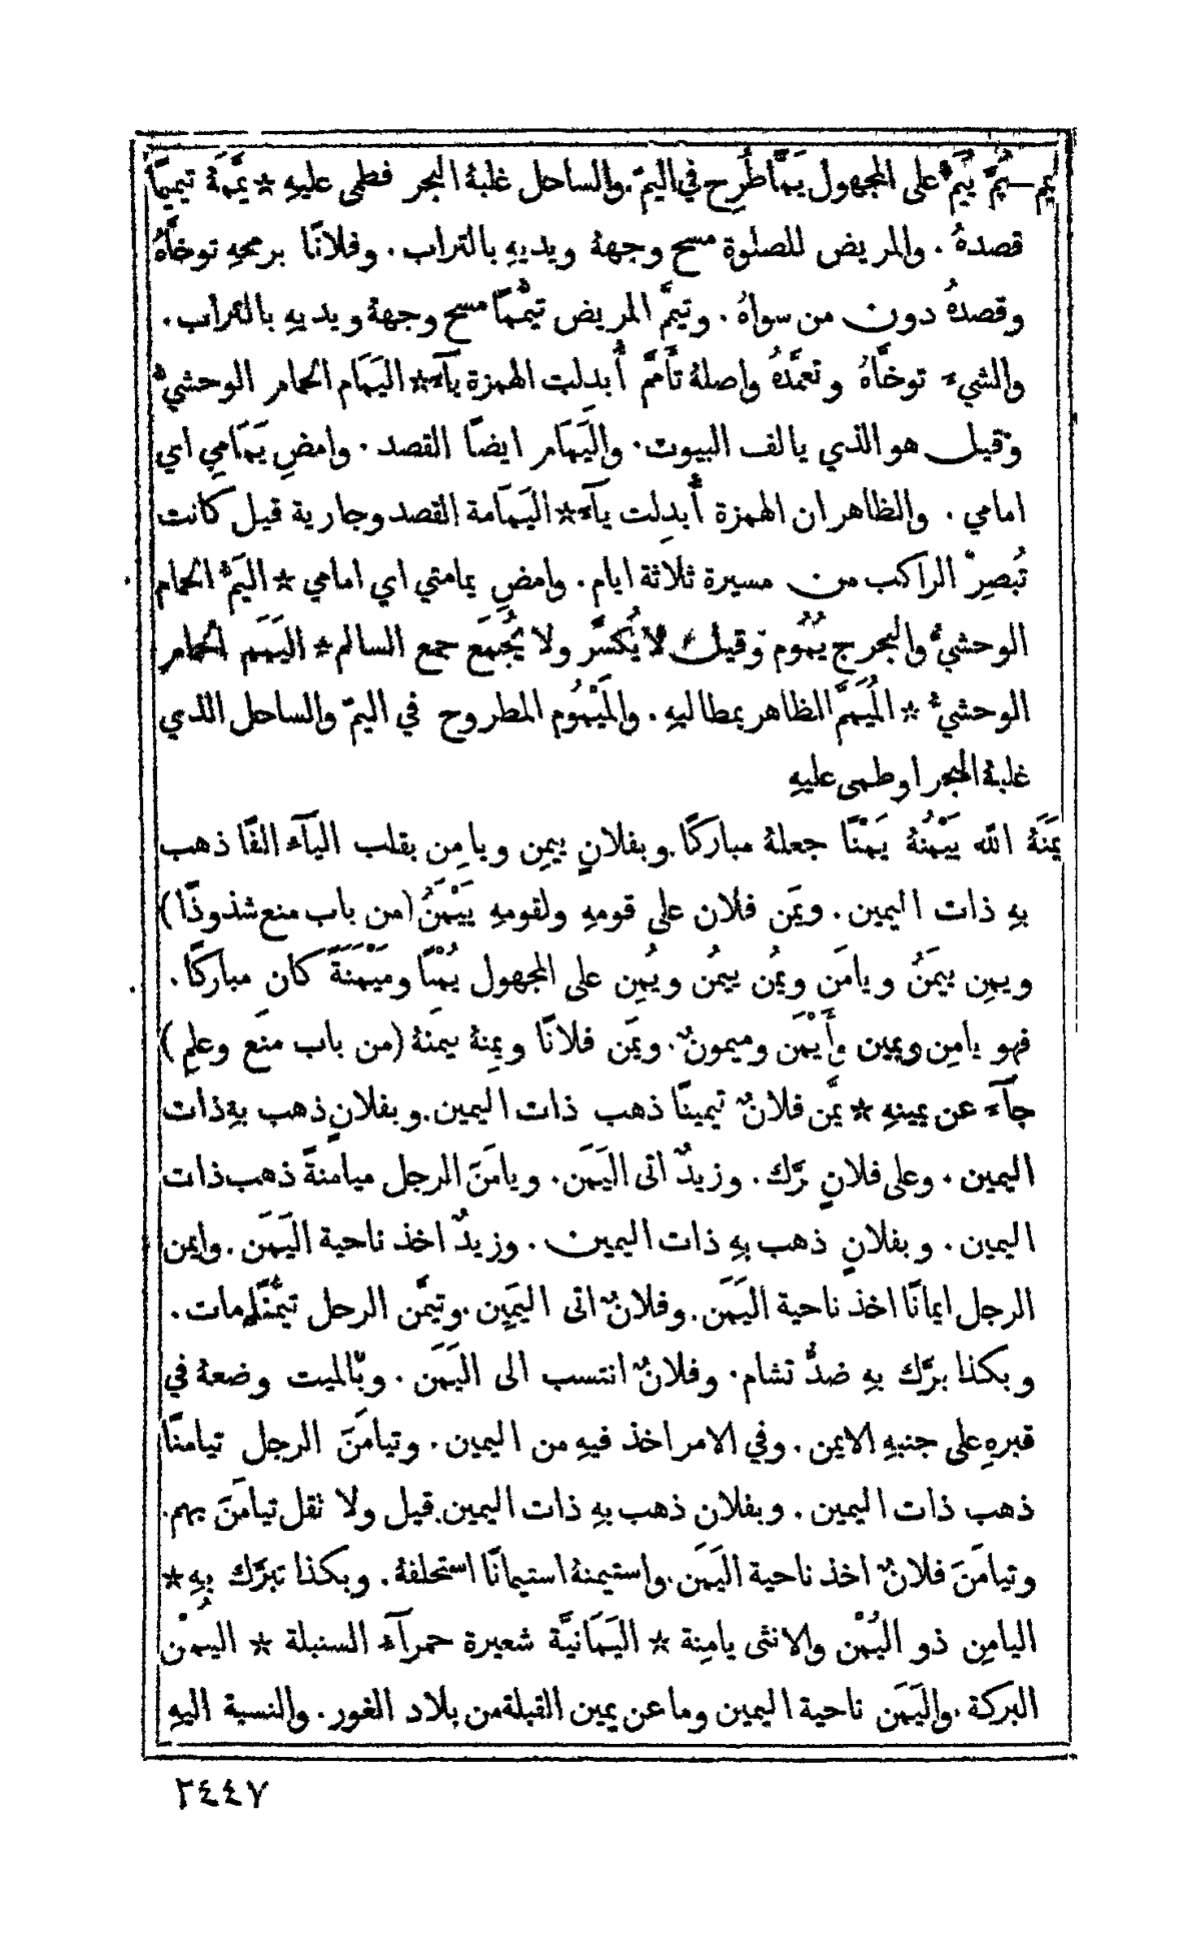 يم — يُمَّ يُيَمُّ على المجهول يَمًّا طُرِح في اليمّ. والساحل غلبهُ البحر فطمى عليهِ * يمَّمَهُ تيميمًا
قصدهُ. والمريض للصلوة مسح وجههُ ويديهِ بالتراب. وفلانًا برمحهِ توخَّاهُ
وقصدهُ دون من سواهُ. وتيمَّم المريض تيمُّمًا مسح وجههُ ويديهِ بالتراب.
والشيءَ توخَّاهُ وتعمَّدهُ واصلهُ تأَمَّم أُبدلت الهمزة يآءً * اليَمَام الحمام الوحشيُّ
وقيل هو الذي يالف البيوت. واليَمَام ايضًا القصد. وامضِ يَمَامِي اي
امامي. والظاهر ان الهمزة أُبدِلت يآءً * اليَمَامة القصد وجارية قيل كانت
تُبصِرُ الراكب من مسيرة ثلاثة ايام. وامضِ يمامتي اي امامي * اليَمُّ الحمام
الوحشيُّ والبحر ج يُمُوم وقيل لا يُكسَّر ولا يُجمَع جمع السالم * اليَمَم الحمام
الوحشيُّ * المُيَمَّم الظاهر بمطالبهِ. والمَيْمُوم المطروح في اليمّ والساحل الذي
غلبهُ البحر او طمى عليهِ
يَمَنَهُ اللّه يَيْمُنُهُ يَمْنًا جعلهُ مباركًا. وبفلانٍ ييمِن ويامِن بقلب اليآء الفًا ذهب
بهِ ذات اليمين. ويمَن فلان على قومهِ ولقومهِ يَيْمَنُ (من باب منع شذوذًا)
ويمِن ييمَنُ ويامَن ويمُن ييمُن ويُمِن على المجهول يُمْنًا ومَيْمَنَةً كان مباركًا.
فهو يامِن ويمين وأَيْمَن وميمونٌ. ويمَن فلانًا ويمِنهُ ييمَنهُ (من باب منَع وعلِم)
جآءَ عن يمينهِ * يمَّن فلانٌ تيمينًا ذهب ذات اليمين. وبفلانٍ ذهب بهِ ذات
اليمين. وعلى فلانٍ برَّك. وزيدٌ اتى اليَمَن. ويامَنَ الرجل ميامنةً ذهب ذات
اليمين. وبفلانٍ ذهب بهِ ذات اليمين. وزيدٌ اخذ ناحية اليَمَن. وايمن
الرجل ايمانًا اخذ ناحية اليَمَن. وفلانٌ اتى اليَمِين. وتيمَّن الرجل تيمُّنًا مات.
وبكذا برَّك بهِ ضدُّ تشام. وفلانٌ انتسب الى اليَمَن. وبالميت وضعهُ في
قبرهِ على جنبهِ الايمن. وفي الامر اخذ فيهِ من اليمين. وتيامَنَ الرجل تيامنًا
ذهب ذات اليمين. وبفلان ذهب بهِ ذات اليمين. قيل ولا تقل تيامَنَ بهم.
وتيامَنَ فلانٌ اخذ ناحية اليَمَن. واستيمنهُ استيمانًا استحلفهُ. وبكذا تبرَّك بهِ *
اليامِن ذو اليُمْن والانثى يامِنة * اليَمَانيَّة شعيرة حمرآءُ السنبلة * اليُمْن
البركة. واليَمَن ناحية اليمين وما عن يمين القبلة من بلاد الغور. والنسبة اليهِ
٢٤٤٧